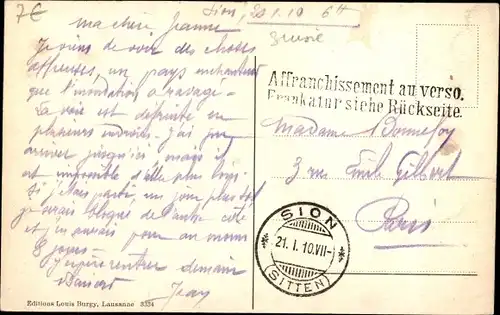 7€
Sion, 20.1.10 6H
Suisse
ma chère Jeanne
Je viens de voir des choses
affreuses, un pays enchanteur
que l'inondation a ravagé.
La voie est détruite en
plusieurs endroits. J'ai pu
arriver jusqu'ici, mais il
est impossible d'aller plus loin.
Si j'étais parti un jour plus tôt
je serais bloqué de l'autre côté
et j'en aurais pour au moins
8 jours.
J'espère rentrer demain
Jean
Affranchissement au verso.
Frankatur siehe Rückseite.
Madame Bonnefoy
3 rue Emile Gilbert
Paris
SION
21. I. 10.VII-
(SITTEN)
Editions Louis Burgy, Lausanne 3324